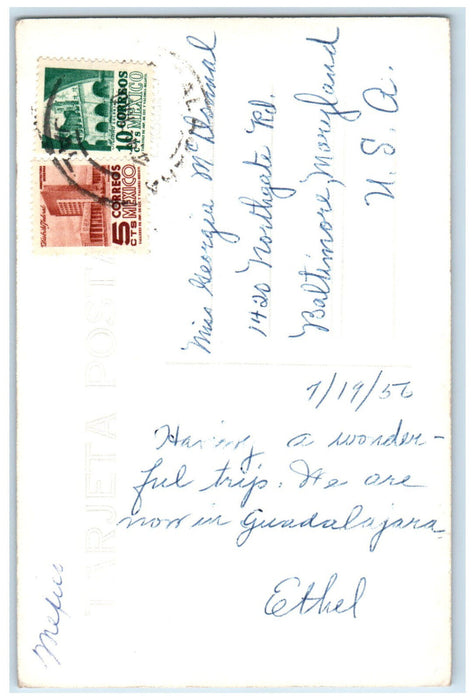 10 CORREOS
MEXICO
5 CORREOS
CTS MEXICO
TARJETA POSTAL
Miss Georgia
1420 Northgate Rd.
Baltimore, Maryland
U. S. A.
7/19/56
Having a wonder-
ful trip. We are
now in Guadalajara.
Ethel
Mexico